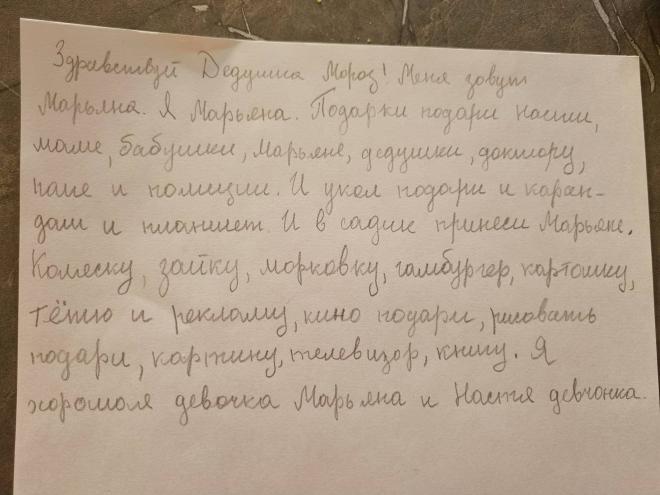 Здравствуй Дедушка Мороз! Меня зовут
Марьяна. Я Марьяна. Подарки подари Насти,
маме, бабушки, Марьяне, дедушки, доктору,
папе и полиции. И укол подари и каран-
даш и планшет. И в садик принеси Марьяне.
Коляску, зайку, морковку, гамбургер, картошку,
тётю и рекламу, кино подари, рисовать
подари, картину, телевизор, книгу. Я
хорошоля девочка Марьяна и Настя девчонка.